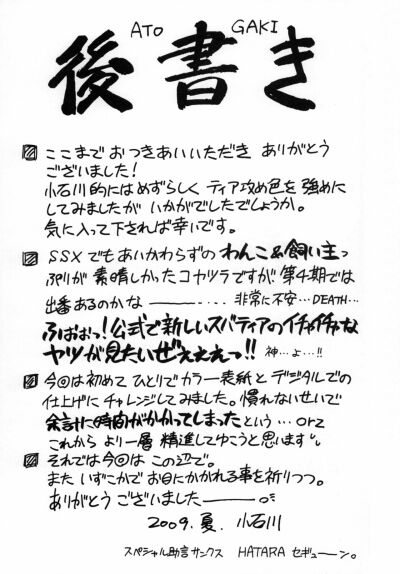 ATO GAKI
後書き
ここまで おつきあいいただき ありがとう
ございました!
小石川的にはめずらしく ティア攻め色を強めに
してみましたが いかがでしたでしょうか。
気に入って下されば幸いです。
SSXでもあいかわらずの わんこ&飼い主っ
ぷりが 素晴しかったコヤツラですが、第4期では
出番あるのかな ――――-・・ 非常に不安…DEATH…
ふおおっ!公式で新しいスパティアのイチャイチャな
ヤツが見たいぜぇぇぇっ!! 神…よ…!!
今回は初めて ひとりでカラー表紙と デジタルでの
仕上げに チャレンジしてみました。慣れないせいで
余計に時間がかかってしまったという…orz
これから より一層 精進してゆこうと思います
それでは今回は この辺で。
また いずこかで お目にかかれる事を祈りつつ。
ありがとう ございました―――
2009.夏. 小石川
スペシャル助言サンクス HATARA セギューーン。